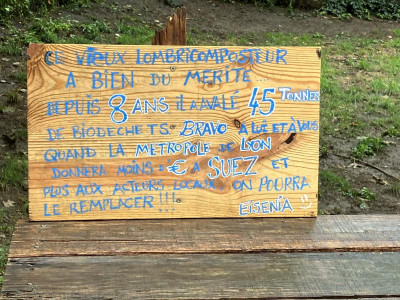 CE VIEUX LOMBRICOMPOSTEUR
A BIEN DU MERITE ...
DEPUIS 8 ANS IL A AVALÉ 45 TONNES
DE BIODECHETS. BRAVO A LUI ET A VOUS
QUAND LA METROPOLE DE LYON
DONNERA MOINS DE € A SUEZ ET
PLUS AUX ACTEURS LOCAUX ON POURRA
LE REMPLACER !!!
EISENIA